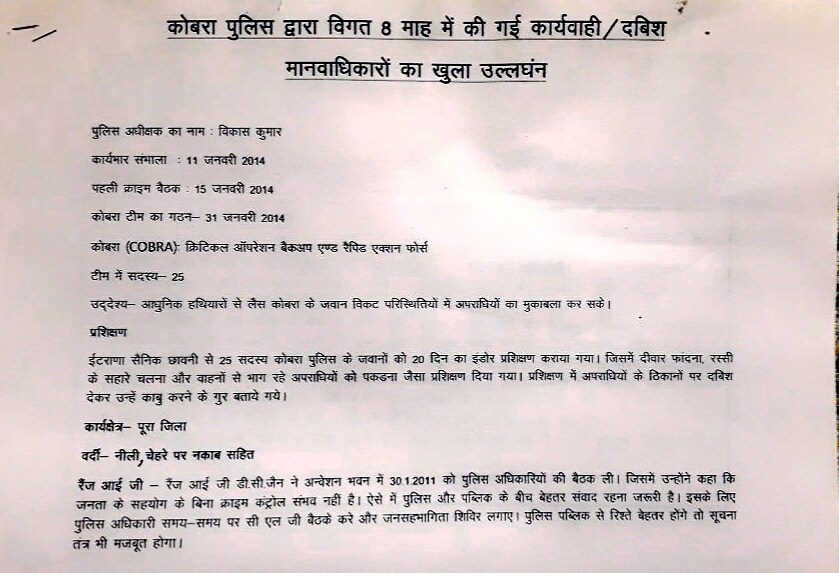 कोबरा पुलिस द्वारा विगत 8 माह में की गई कार्यवाही/दबिश
मानवाधिकारों का खुला उल्लघंन
पुलिस अधीक्षक का नाम : विकास कुमार
कार्यभार संभाला : 11 जनवरी 2014
पहली क्राइम बैठक : 15 जनवरी 2014
कोबरा टीम का गठन– 31 जनवरी 2014
कोबरा (COBRA): क्रिटिकल ऑपरेशन बैकअप एण्ड रैपिड एक्शन फोर्स
टीम में सदस्य– 25
उद्देश्य– आधुनिक हथियारों से लैस कोबरा के जवान विकट परिस्थितियों में अपराधियों का मुकाबला कर सके।
प्रशिक्षण
ईटराणा सैनिक छावनी से 25 सदस्य कोबरा पुलिस के जवानों को 20 दिन का इंडोर प्रशिक्षण कराया गया। जिसमें दीवार फांदना, रस्सी
के सहारे चलना और वाहनों से भाग रहे अपराधियों को पकडना जैसा प्रशिक्षण दिया गया। प्रशिक्षण में अपराधियों के ठिकानों पर दबिश
देकर उन्हें काबु करने के गुर बताये गये।
कार्यक्षेत्र– पूरा जिला
वर्दी– नीली, चेहरे पर नकाब सहित
रैंज आई जी – रैंज आई जी डी.सी.जैन ने अन्वेशन भवन में 30.1.2011 को पुलिस अधिकारियों की बैठक ली। जिसमें उन्होंने कहा कि
जनता के सहयोग के बिना क्राइम कंट्रोल संभव नहीं है। ऐसे में पुलिस और पब्लिक के बीच बेहतर संवाद रहना जरूरी है। इसके लिए
पुलिस अधिकारी समय–समय पर सी एल जी बैठके करे और जनसहभागिता शिविर लगाए। पुलिस पब्लिक से रिश्ते बेहतर होंगे तो सूचना
तंत्र भी मजबूत होगा।